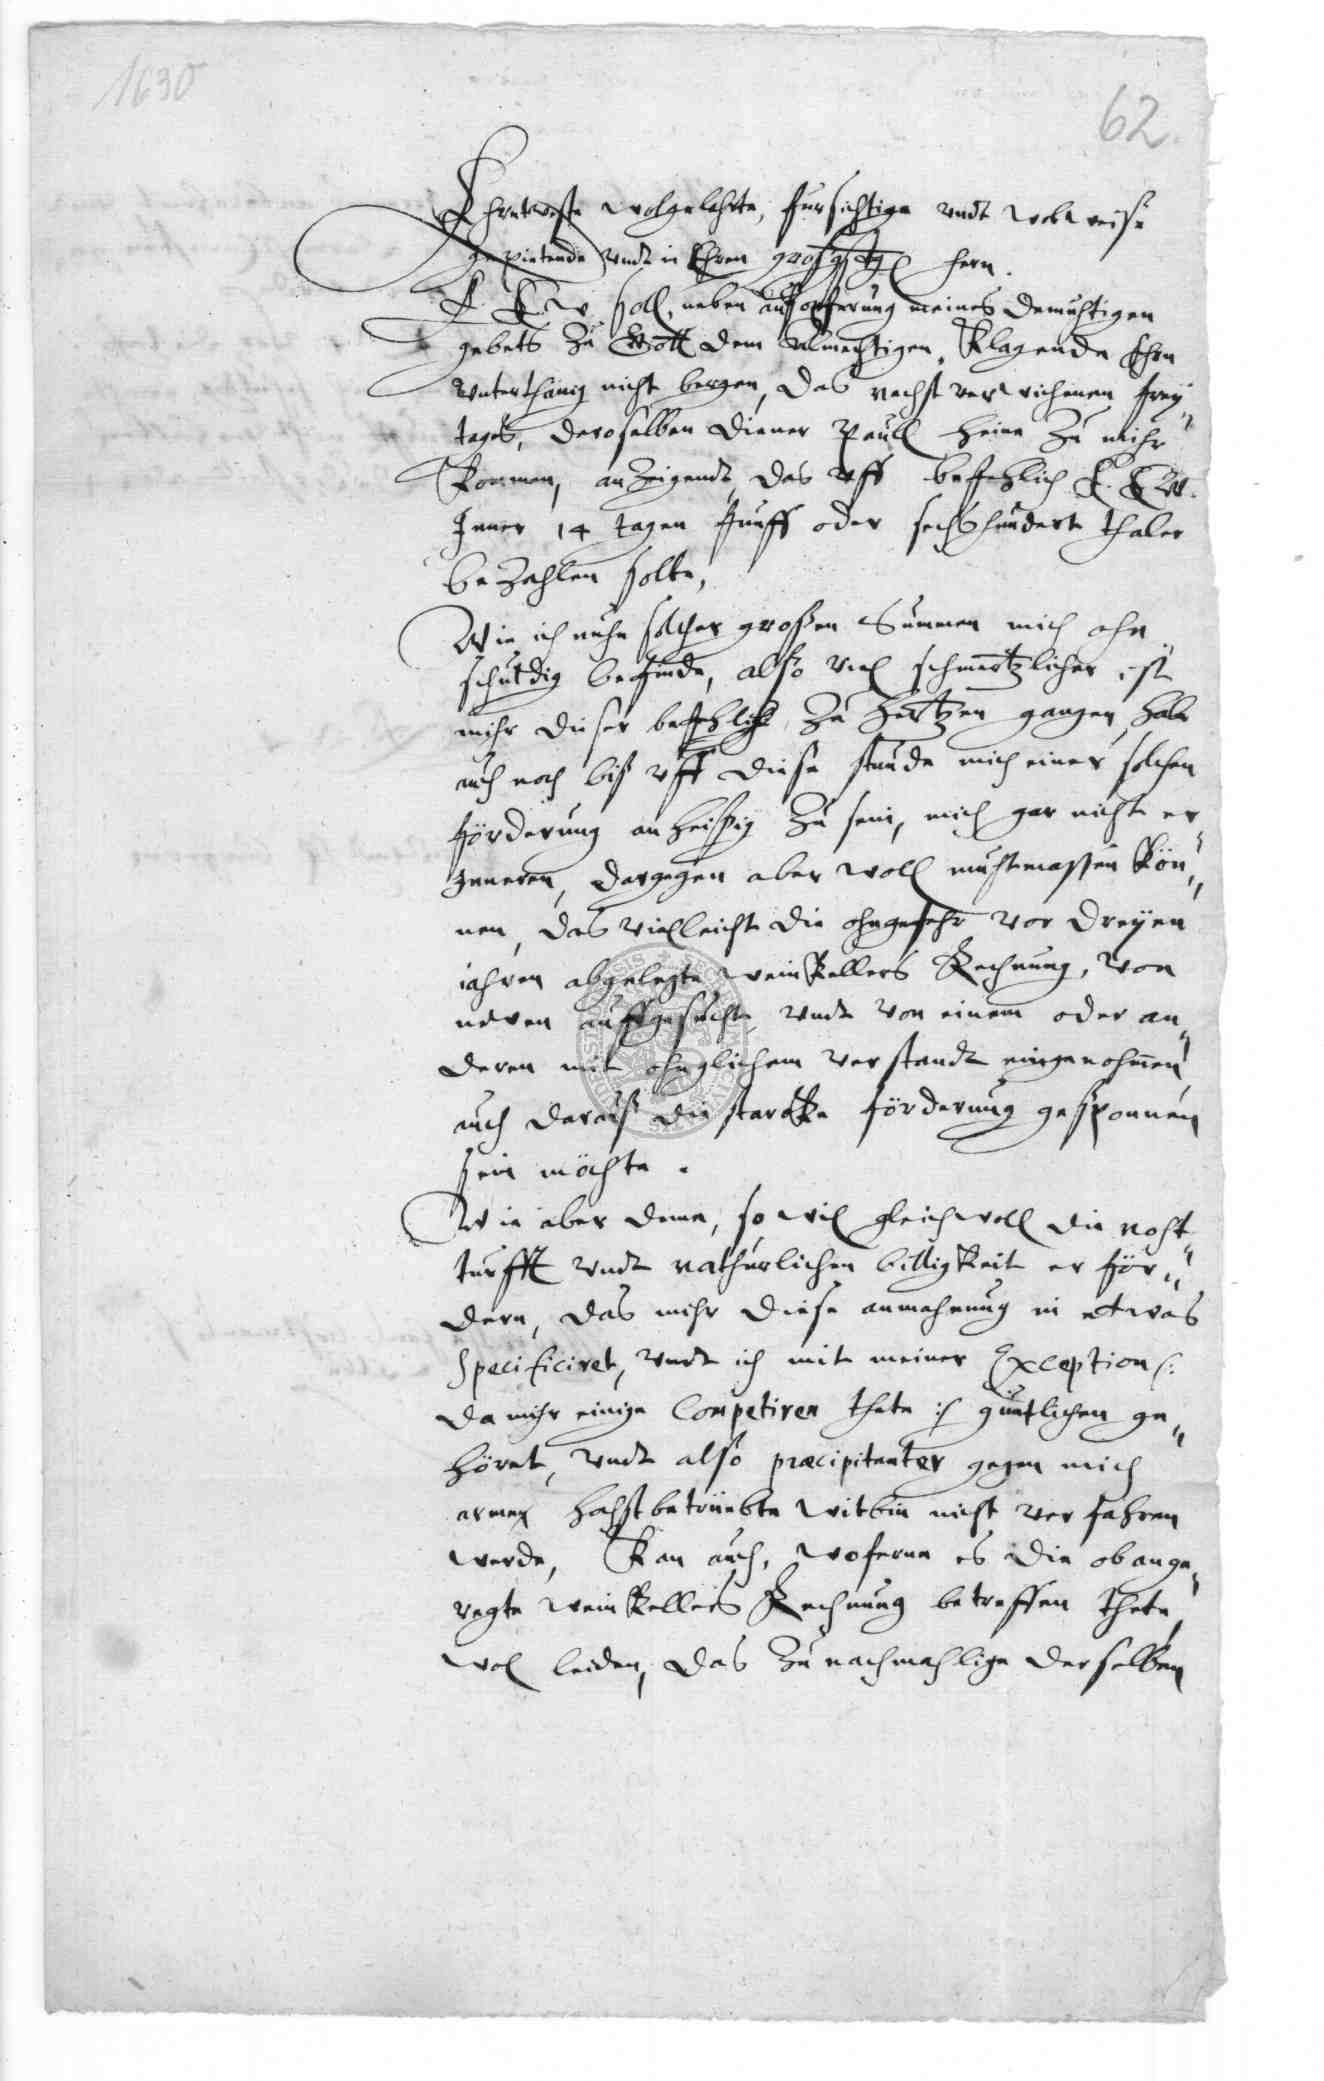 1630
62
Ehrnteste wolgelahrte, fursichtige undt wolweise
gepietende undt in Ehren großgstge hern.
E. E. W. soll, neben auffopferung meines demuhtigen
gebets zu Gott dem Almechtigen, klagende
unterthänig nicht bergen, das nechst verwichenen frey„
tages, deroselben diener Paull Heine zu mihr
kommen, anzeigendt, das uff befehlich E. E. W.
Inner 14 tagen funff oder sechshundert thaler
bezahlen solte,
Wie ich nuhn solcher großen Summen mich ohn„
schuldig befinde, also viel schmertzlicher ist
mihr dieser befehlich zu hertzen gangen, habe
auch noch biß uff diese stunde mich einer solchen
förderung anheissig zu sein, mich gar nicht er„
inneren, dargegen aber woll muhtmassen kön„
nen, das vielleicht die ohngefehr vor dreyen
iahren abgelegte weinkellers Rechnung, von
neuen auffgesucht, undt von einem oder an„
deren mit ohnglichem verstandt eingenohmen,
auch darauß die starcke förderung gesponnen
sein möchte.
Wie aber deme, so wil gleichwoll die noht„
turfft undt nathurlichen billigkeit erför„
dern, das mihr diese anmahnung in etwas
specificiret, undt ich mit meiner Exception /:
da mihr einige competiren thete :/ güetlichen ge„
höret, undt also præcipitanter gegen mich
armen hochstbetrüebte witbin nicht verfahren
werde, kan auch, woferne es die obange„
regte weinkellers Rechnung betreffen thete,
wol leiden, das zu nachmahlige derselben